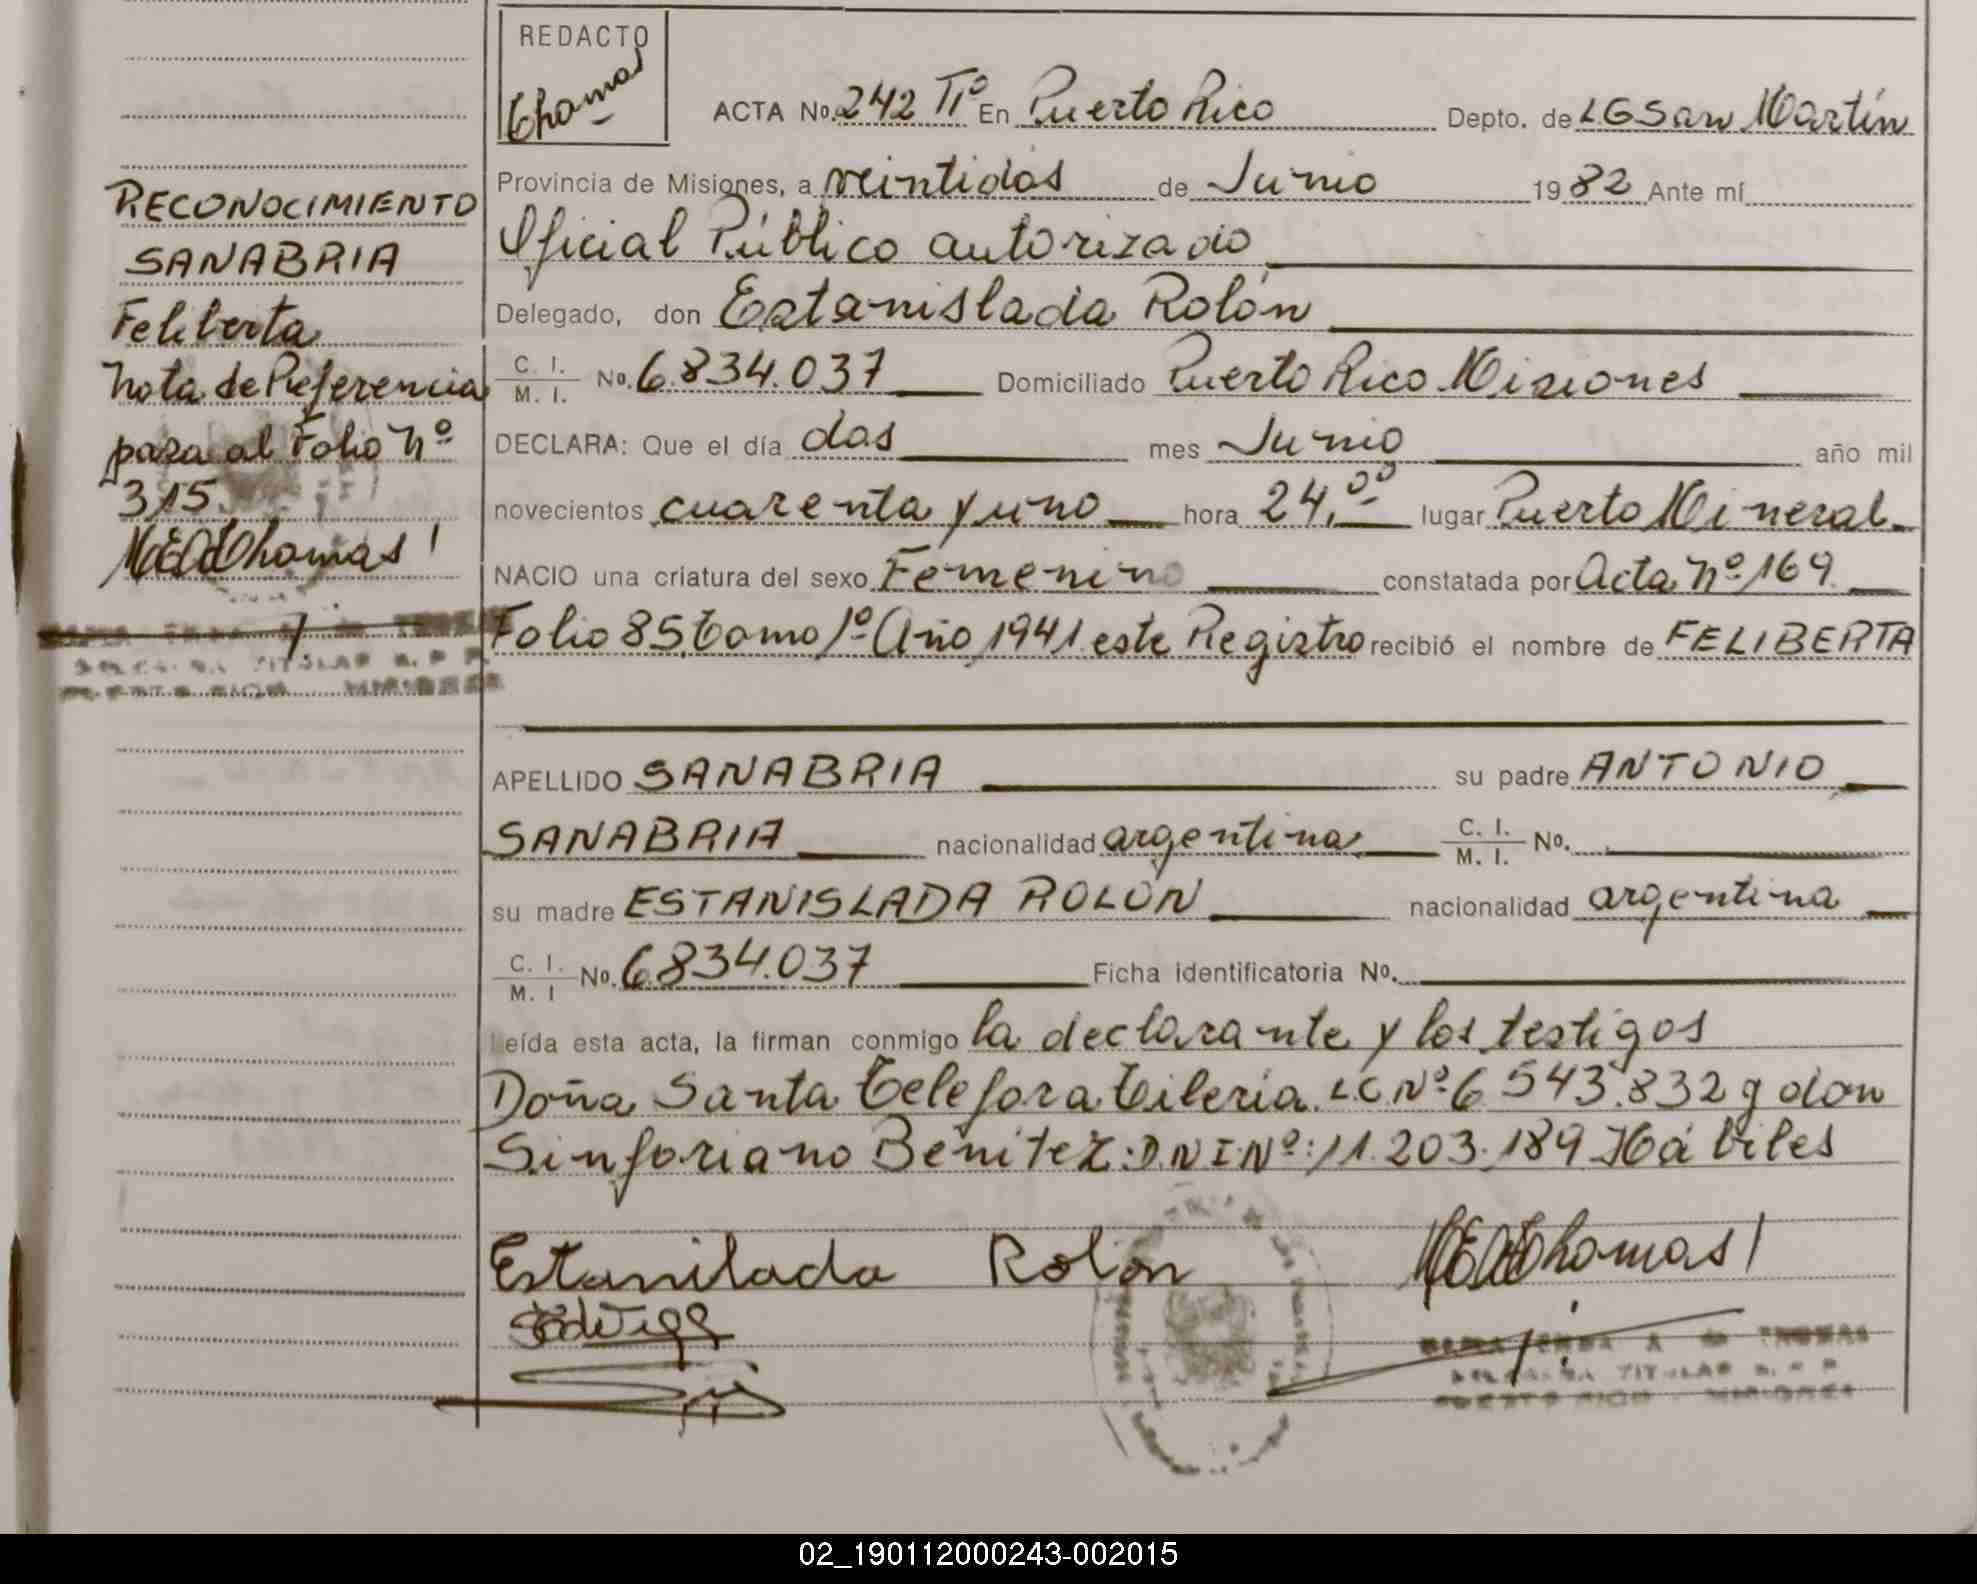 REDACTO
Thomas
ACTA No. 242 Tº En Puerto Rico Depto. de L G San Martín
Provincia de Misiones, a veintidos de Junio 1982 Ante mí
Oficial Público autorizado
Delegado, don Estanislada Rolón
C. I. / M. I. No. 6.834.037 Domiciliado Puerto Rico Misiones
DECLARA: Que el día dos mes Junio año mil
novecientos cuarenta y uno hora 24,00 lugar Puerto Mineral
NACIO una criatura del sexo Femenino constatada por Acta Nº 169
Folio 85 Tomo 1º Año 1941 este Registro recibió el nombre de FELIBERTA
APELLIDO SANABRIA su padre ANTONIO
SANABRIA nacionalidad argentina C. I. / M. I. No.
su madre ESTANISLADA ROLON nacionalidad argentina
C. I. / M. I No. 6.834.037 Ficha identificatoria No.
Leída esta acta, la firman conmigo la declarante y los testigos
Doña Santa Telefora Tileria L.C Nº 6 543.832 y don
Sinforiano Benitez: D.N.I.Nº: 11.203.189 Hábiles
Estanilada Rolón
Thomas
THOMAS
TITULAR
PUERTO RICO - MISIONES
RECONOCIMIENTO
SANABRIA
Feliberta
Nota de Referencia
pasa al Folio Nº
315
Thomas
TITULAR
PUERTO RICO MISIONES
02_190112000243-002015